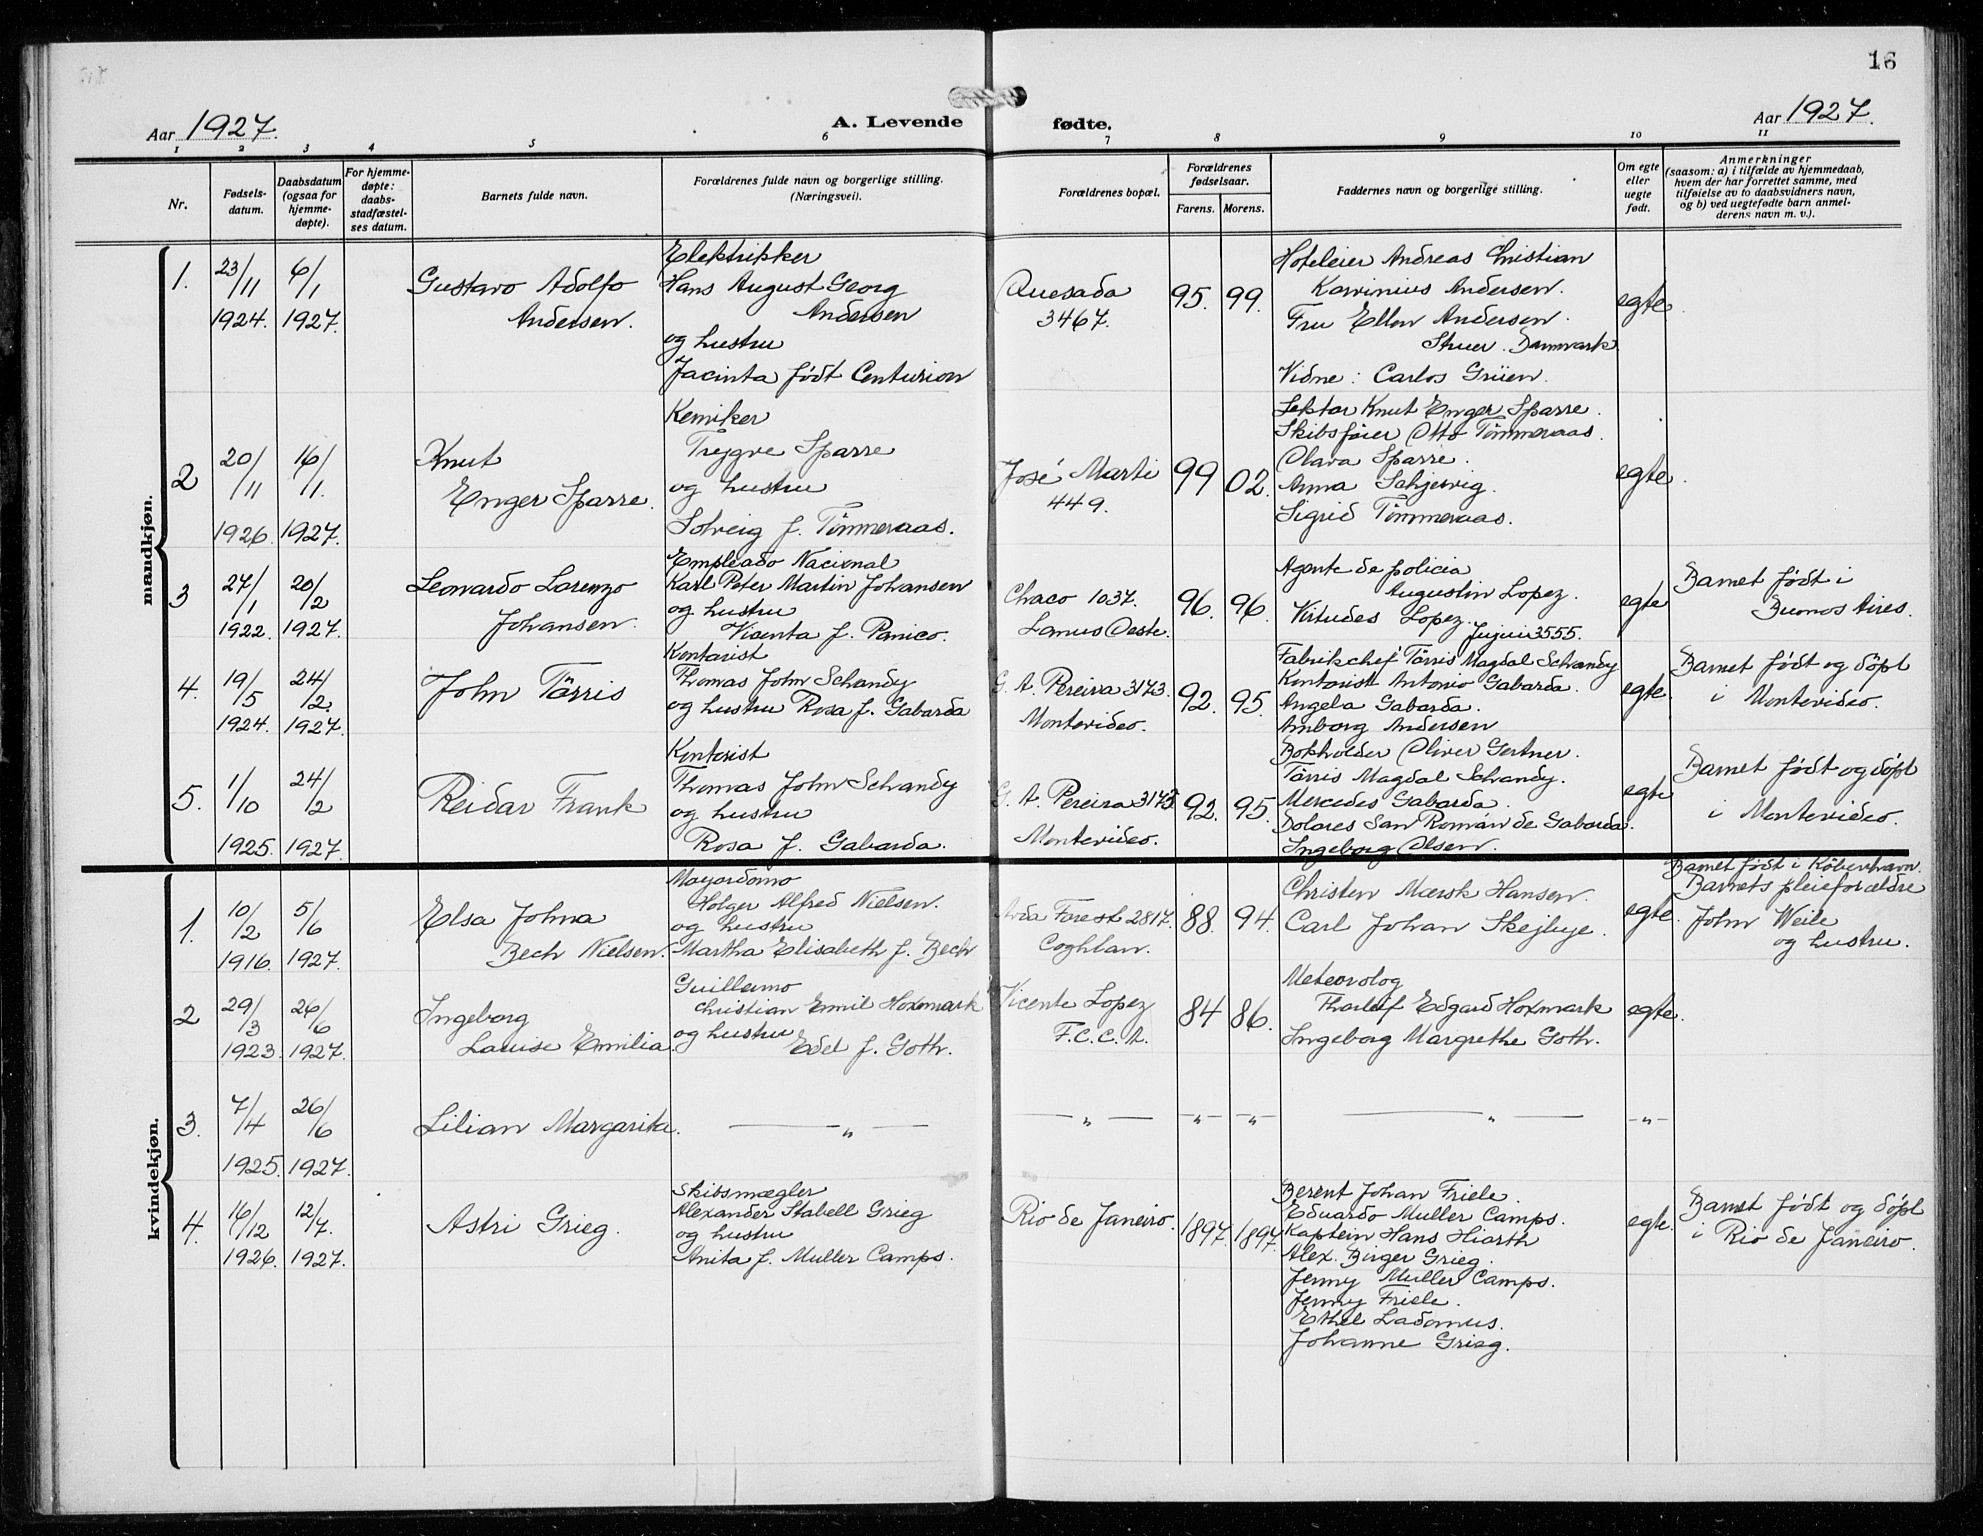 16
Aar 1927.
A. Levende fødte.
Aar 1927.
1 2 3 4 5 6 7 8 9 10 11
Nr.
Fødsels-
datum.
Daabsdatum
(ogsaa for
hjemme-
døpte).
For hjemme-
døpte:
daabs-
stadfæstel-
ses datum.
Barnets fulde navn.
Forældrenes fulde navn og borgerlige stilling.
(Næringsvei).
Forældrenes bopæl.
Forældrenes
fødselsaar.
Farens. Morens.
Faddernes navn og borgerlige stilling.
Om egte
eller
uegte
født.
Anmerkninger
(saasom: a) i tilfælde av hjemmedaab,
hvem der har forrettet samme, med
tilføielse av to daabsvidners navn,
og b) ved uegtefødte barn anmel-
derens navn m. v.).
mandkjøn.
1.
23/11
1924.
6/1
1927.
Gustavo Adolfo
Andersen.
Elektrikker
Hans August Georg
Andersen
og hustru
Jacinta født Centurion
Quesada
3467.
95.
99.
Hoteleier Andreas Christian
Karvinius Andersen.
Fru Ellen Andersen.
Struer. Danmark.
Vidne: Carlos Grüen.
egte.
2
20/11
1926.
16/1.
1927.
Knut
Enger Sparre.
Kemiker
Trygve Sparre
og hustru
Solveig f. Tömmeraas.
José Marti
449.
99
02.
Lektor Knut Enger Sparre.
Skibsfører Otto Tömmeraas.
Clara Sparre.
Anna Schjervig.
Sigrid Tömmeraas.
egte.
3
27/1
1922.
20/2
1927.
Leonardo Lorenzo
Johansen.
Empleado Nacional
Karl Peter Martin Johansen
og hustru
Vicenta f. Panico.
Chaco 1037.
Lanus Oeste.
96.
96.
Agente de policia
Augustin Lopez.
Virtudes Lopez.
Jujui 3555.
egte
Barnet født i
Buenos Aires.
4.
19/5
1924.
24/2.
1927.
John Törris
Kontorist
Thomas John Schandy
og hustru Rosa f. Gabarda
G. A. Pereira 3173.
Montevideo.
92.
95.
Fabrikchef Törris Magdal Schandy
Kontorist Antonio Gabarda.
Angela Gabarda.
Amborg Andersen
egte.
Barnet født og döpt
i Montevideo.
5.
1/10
1925.
24/2
1927.
Reidar Frank
Kontorist
Thomas John Schandy
og hustru
Rosa f. Gabarda.
G. A. Pereira 3173
Montevideo.
92.
95.
Bokholder Oliver Gertner.
Törris Magdal Schandy.
Mercedes Gabarda.
Dolores San Román de Gabarda.
Ingeborg Olsen.
egte
Barnet født og döpt
i Montevideo.
kvindekjøn.
1.
10/2
1916.
5/6
1927.
Elsa Johna
Bech Nielsen.
Mayordomo
Holger Alfred Nielsen.
og hustru
Martha Elisabeth f. Bech
Avda Forest 2817.
Coghlan.
88.
94.
Christen Mærsk Hansen.
Carl Johan Skejbye.
egte.
Barnet født i Köbenhavn.
Barnets pleieforældre
John Weile
og hustru.
2
29/3
1923.
26/6
1927.
Ingeborg
Louise Emilia.
Guillermo
Christian Emil Hoxmark
og hustru
Edel f. Goth.
Vicente Lopez
F.C.C.A.
84
86.
Meteorolog
Thorleif Edgard Hoxmark
Ingeborg Margrethe Goth.
egte.
3.
7/4
1925.
26/6
1927.
Lilian Margarita.
— „ —
— „ —
-„-
-„-
— „ —
-„-
4.
16/12
1926.
12/7.
1927.
Astri Grieg.
Skibsmægler
Alexander Stabell Grieg
og hustru
Anita f. Muller Camps.
Rio de Janeiro.
1897.
1897.
Berent Johan Friele.
Eduardo Muller Camps.
Kaptein Hans Hiorth
Alex. Birger Grieg.
Jenny Muller Camps.
Jenny Friele.
Ethel Ladomus.
Johanne Grieg.
egte.
Barnet født og döpt
i Rio de Janeiro.